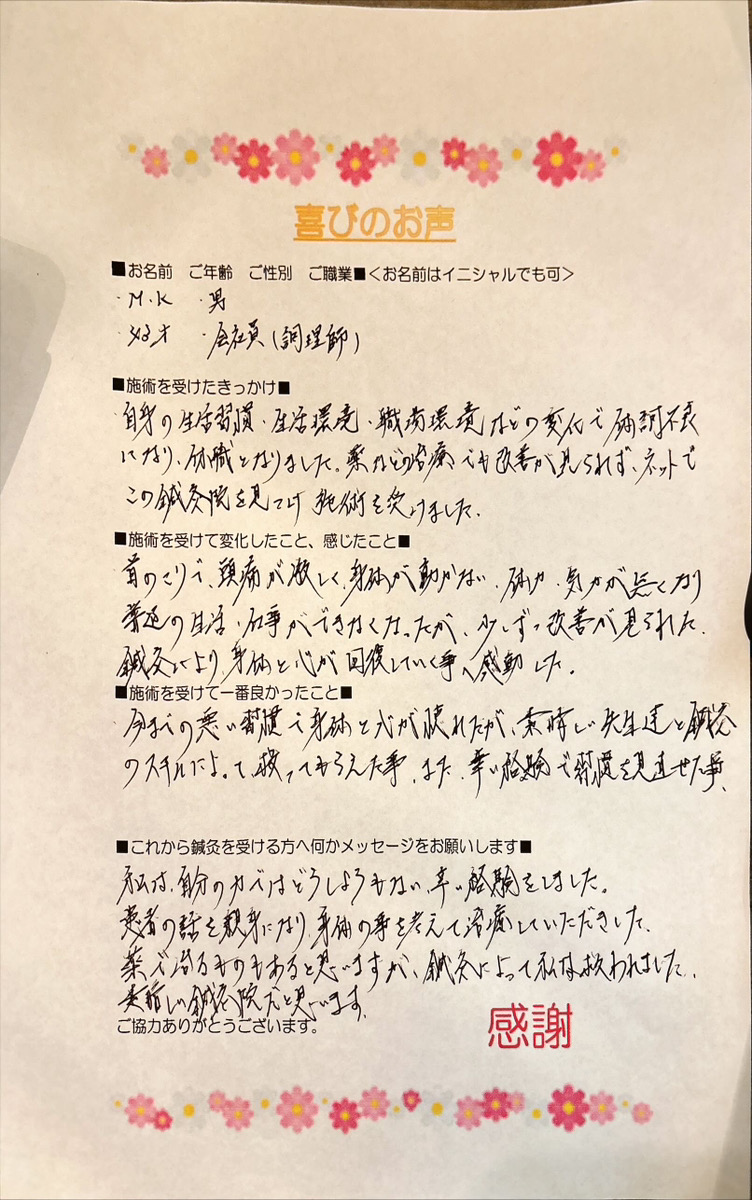 喜びのお声
■お名前　ご年齢　ご性別　ご職業■<お名前はイニシャルでも可>
・M.K　・男
・会社員(調理師)
■施術を受けたきっかけ■
自身の生活習慣・生活環境・職場環境などの変化で体調不良
になり、休職となりました。薬などの治療でも改善が見られず、ネットで
この鍼灸院を見つけ施術を受けました。
■施術を受けて変化したこと、感じたこと■
首のこりで、頭痛が激しく、身体が動かない、体力・気力が無くなり
普通の生活・仕事ができなくなったが、少しずつ改善が見られた。
鍼灸により、身体と心が回復していく事へ感動した。
■施術を受けて一番良かったこと■
今までの悪い習慣で身体と心が疲れたが、素晴しい先生達と鍼灸
のスキルによって、救ってもらえた事、また、辛い経験で習慣を見直せた事、
■これから鍼灸を受ける方へ何かメッセージをお願いします■
私は、自分の力ではどうしようもない、辛い経験をしました。
患者の話を親身になり、身体の事を考えて治療していただきました。
薬で治るものもあると思いますが、鍼灸によって私は救われました。
素晴しい鍼灸院だと思います。
ご協力ありがとうございます。
感謝